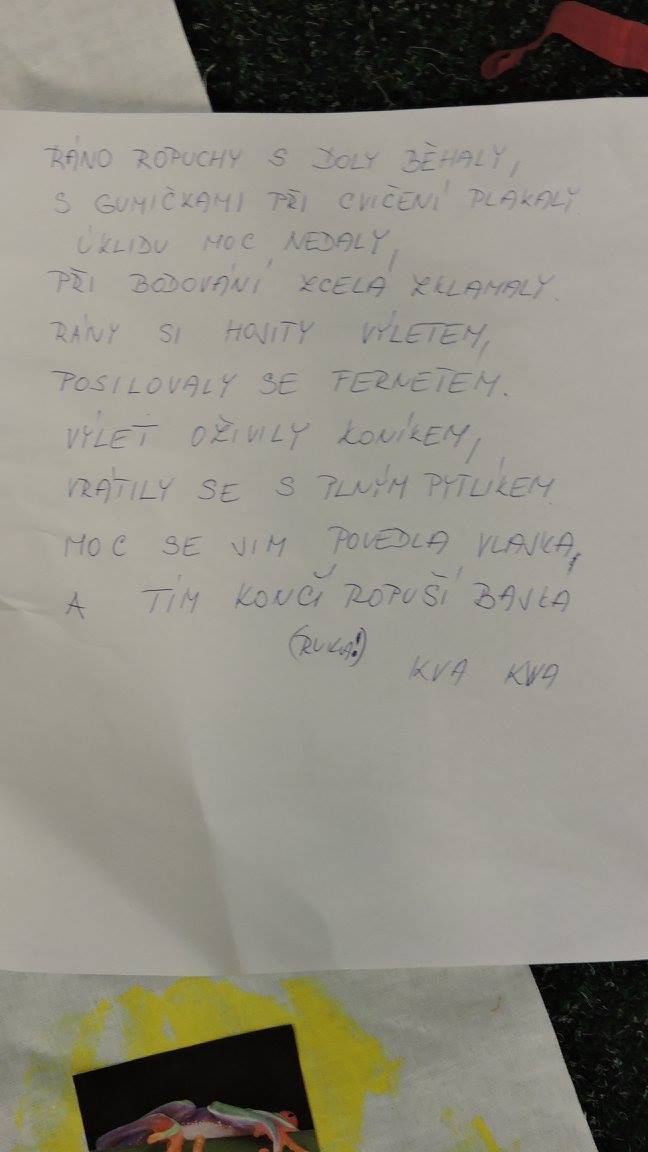 RÁNO ROPUCHY S DOLY BĚHALY,
S GUMIČKAMI PŘI CVIČENÍ PLAKALY.
ÚKLIDU MOC NEDALY,
PŘI BODOVÁNÍ ZCELA ZKLAMALY.
RÁNY SI HOJITY VÝLETEM,
POSILOVALY SE FERNETEM.
VÝLET OŽIVILY KONÍKEM,
VRÁTILY SE S PLNÝM PYTLÍKEM.
MOC SE JIM POVEDLA VLAJKA,
A TÍM KONČÍ ROPUŠÍ BAJKA
(RUKA!)
KVA KVA